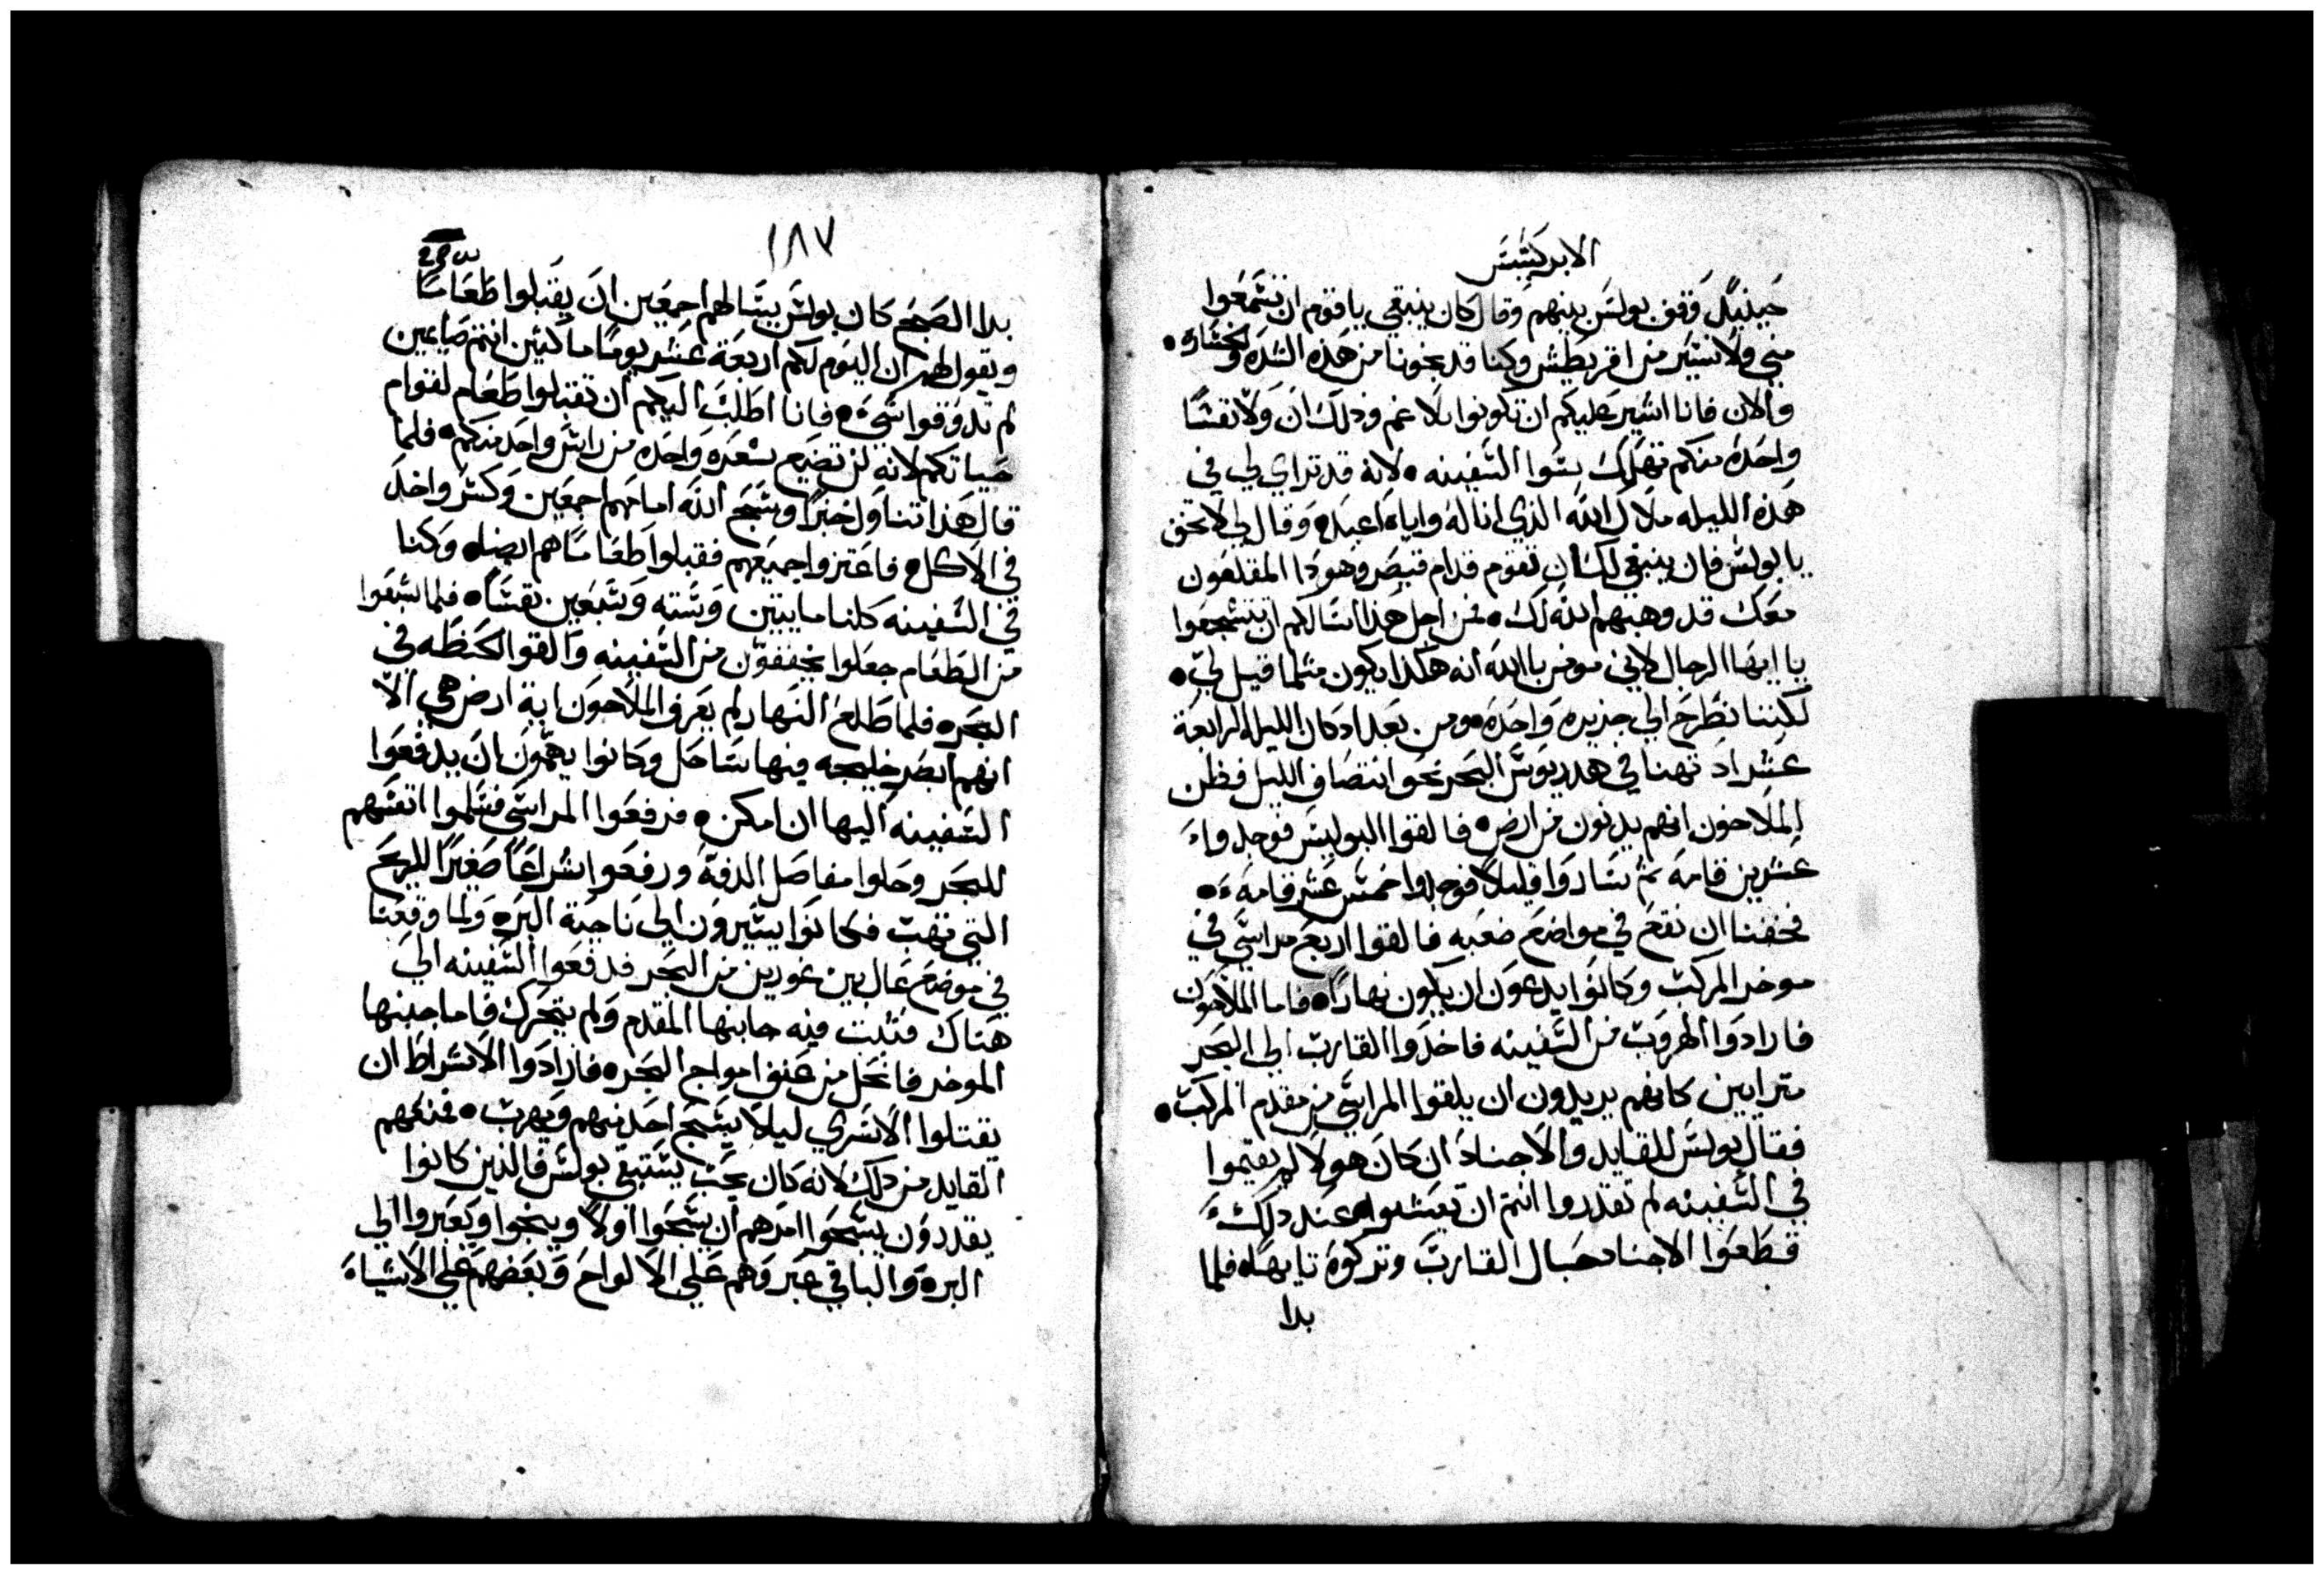 الابركسيس
حينيدٍ وقف بولس بينهم وقال كان ينبغي ياقوم ان تسمعوا
مني ولا نسير من اقريطش وكنا قد نجونا من هذه الشده والخساره •
والان فانا اشير عليكم ان تكونوا بلا غم وذلك ان ولا نفسًا
واحدة منكم تهلك سوا السفينه • لانه قد تراي لي في
هذه الليله ملاك الله الذي انا له واياه اعبد • وقال لي لا تخف
يا بولس فان ينبغي لك ان تقوم قدام قيصر وهوذا المقلعون
معك قد وهبهم الله لك • فمن اجل هذا اسالكم ان تتشجعوا
يا ايها الرجال لاني مومن بالله انه هكذا يكون مثلما قيل لي •
لكننا نطرح الي جزيره واحده ومن بعد اذ كان الليله الرابعة
عشر اذ تهنا في هدريوس البحر نحو انتصاف الليل فظن
الملاحون انهم يدنون من ارض • فالقوا البوليس فوجدواء
عشرين قامه ثم ساروا قليلًا فوجدوا خمس عشر قامه •
فخفنا ان نقع في مواضع صعبه فالقوا اربع مراسي في
موخر المركب وكانوا يدعون ان يكون نهارًا • فاما الملاحون
فارادوا الهروب من السفينه فاخذوا القارب الي البحر
مترايين كانهم يريدون ان يلقوا المراسي من مقدم المركب •
فقال بولس للقايد والاجناد ان كان هولا لم يقيموا
في السفينه لم تقدروا انتم ان تعيشوا • عند ذلك
قطعوا الاجناد حبال القارب وتركوه تايهًا • فلما
بدا
١٨٧
بدا الصبح كان بولس يسالهم اجمعين ان يقبلوا طعامًا
ويقول لهم ان اليوم لكم اربعة عشر يومًا ماكثين انتم صايمين
لم تدوقوا شي • فانا اطلب اليكم ان تقبلوا طعام لقوام
حياتكم لانه لن تضيع شعره واحده من راس واحد منكم • فلما
قال هذا تناول خبزًا وسبح الله امامهم اجمعين وكسر واخذ
في الاكل • فاعتزوا جميعهم فقبلوا طعامًا هم ايضا • وكنا
في السفينه كلنا مايتين وسته وسبعين نفسًا • فلما شبعوا
من الطعام جعلوا يخففون من السفينه والقوا الحنطه في
البحر • فلما طلع النهار لم يعرف الملاحون اية ارض هي الا
انهم ابصر خليجه فيها ساحل وكانوا يهمون ان يدفعوا
السفينه اليها ان امكن • فرفعوا المراسي فسلموا انفسهم
للبحر وحلوا مفاصل الدفة ورفعوا شراعًا صغيرًا للريح
التي تهب فكانوا يسيرون الي ناحية البر • ولما وقعنا
في موضع عال بين غورين من البحر فدفعوا السفينه الي
هناك فثبت فيه جانبها المقدم ولم يتحرك فاما جنبها
الموخر فانحل من عنف امواج البحر • فارادوا الاشراط ان
يقتلوا الاسري ليلا يسبح احد منهم ويهرب • فمنعهم
القايد من ذلك لانه كان يحب يستبقي بولس فالذين كانوا
يقدرون يسبحوا امرهم ان يسبحوا اولًا وينجوا ويعبروا الي
البر • والباقي عبروهم علي الالواح وبعضهم علي الاشياء